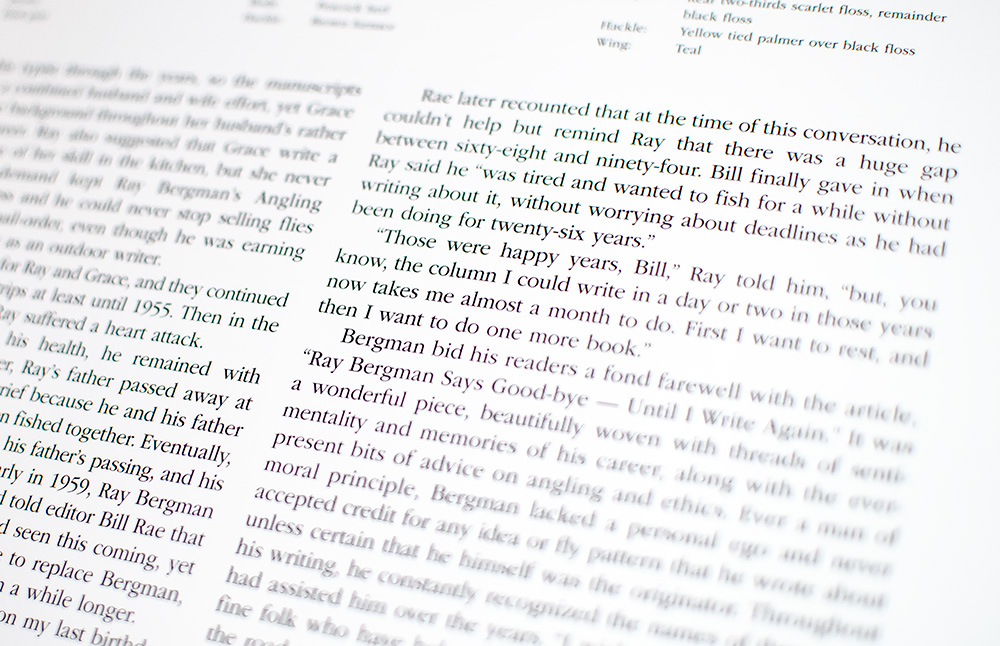 Rear two-thirds scarlet floss, remainder
black floss
Hackle: Yellow tied palmer over black floss
Wing: Teal
through the years, so the manuscripts
combined husband and wife effort, yet Grace
background throughout her husband's rather
Ray also suggested that Grace write a
of her skill in the kitchen, but she never
demand kept Ray Bergman's Angling
and he could never stop selling flies
order, even though he was earning
as an outdoor writer.
for Ray and Grace, and they continued
at least until 1955. Then in the
Ray suffered a heart attack.
his health, he remained with
Ray's father passed away at
because he and his father
fished together. Eventually,
his father's passing, and his
in 1959, Ray Bergman
told editor Bill Rae that
seen this coming, yet
to replace Bergman,
a while longer.
on my last
Rae later recounted that at the time of this conversation, he
couldn't help but remind Ray that there was a huge gap
between sixty-eight and ninety-four. Bill finally gave in when
Ray said he “was tired and wanted to fish for a while without
writing about it, without worrying about deadlines as he had
been doing for twenty-six years.”
“Those were happy years, Bill,” Ray told him, “but, you
know, the column I could write in a day or two in those years
now takes me almost a month to do. First I want to rest, and
then I want to do one more book.”
Bergman bid his readers a fond farewell with the article,
“Ray Bergman Says Good-bye — Until I Write Again.” It was
a wonderful piece, beautifully woven with threads of senti-
mentality and memories of his career, along with the ever-
present bits of advice on angling and ethics. Ever a man of
moral principle, Bergman lacked a personal ego and never
accepted credit for any idea or fly pattern that he wrote about
unless certain that he himself was the originator. Throughout
his writing, he constantly recognized the names of
had assisted him over the years.
fine folk who have
the road